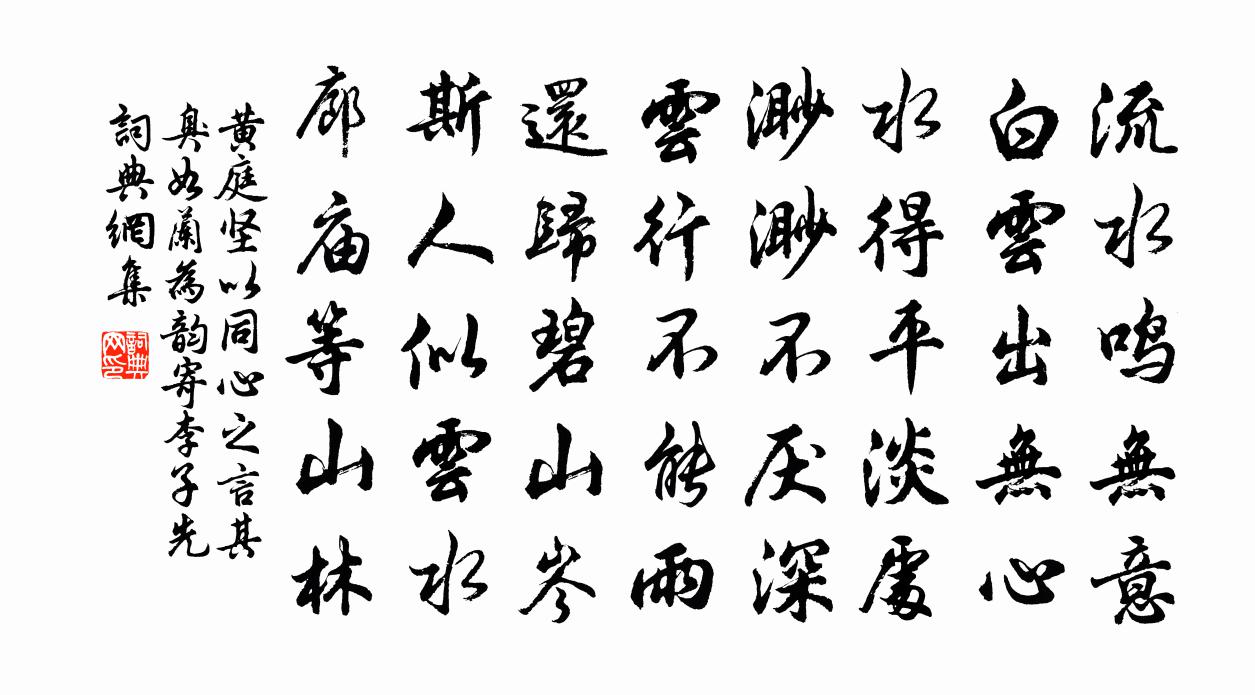 流水鸣無意
白雲出無心
水得平淡處
渺渺不厌深
雲行不能雨
還歸碧山岑
斯人似雲水
廊庙等山林
黄庭坚以同心之言其
臭如蘭為韵寄李子先
詞典網集
詞典网印